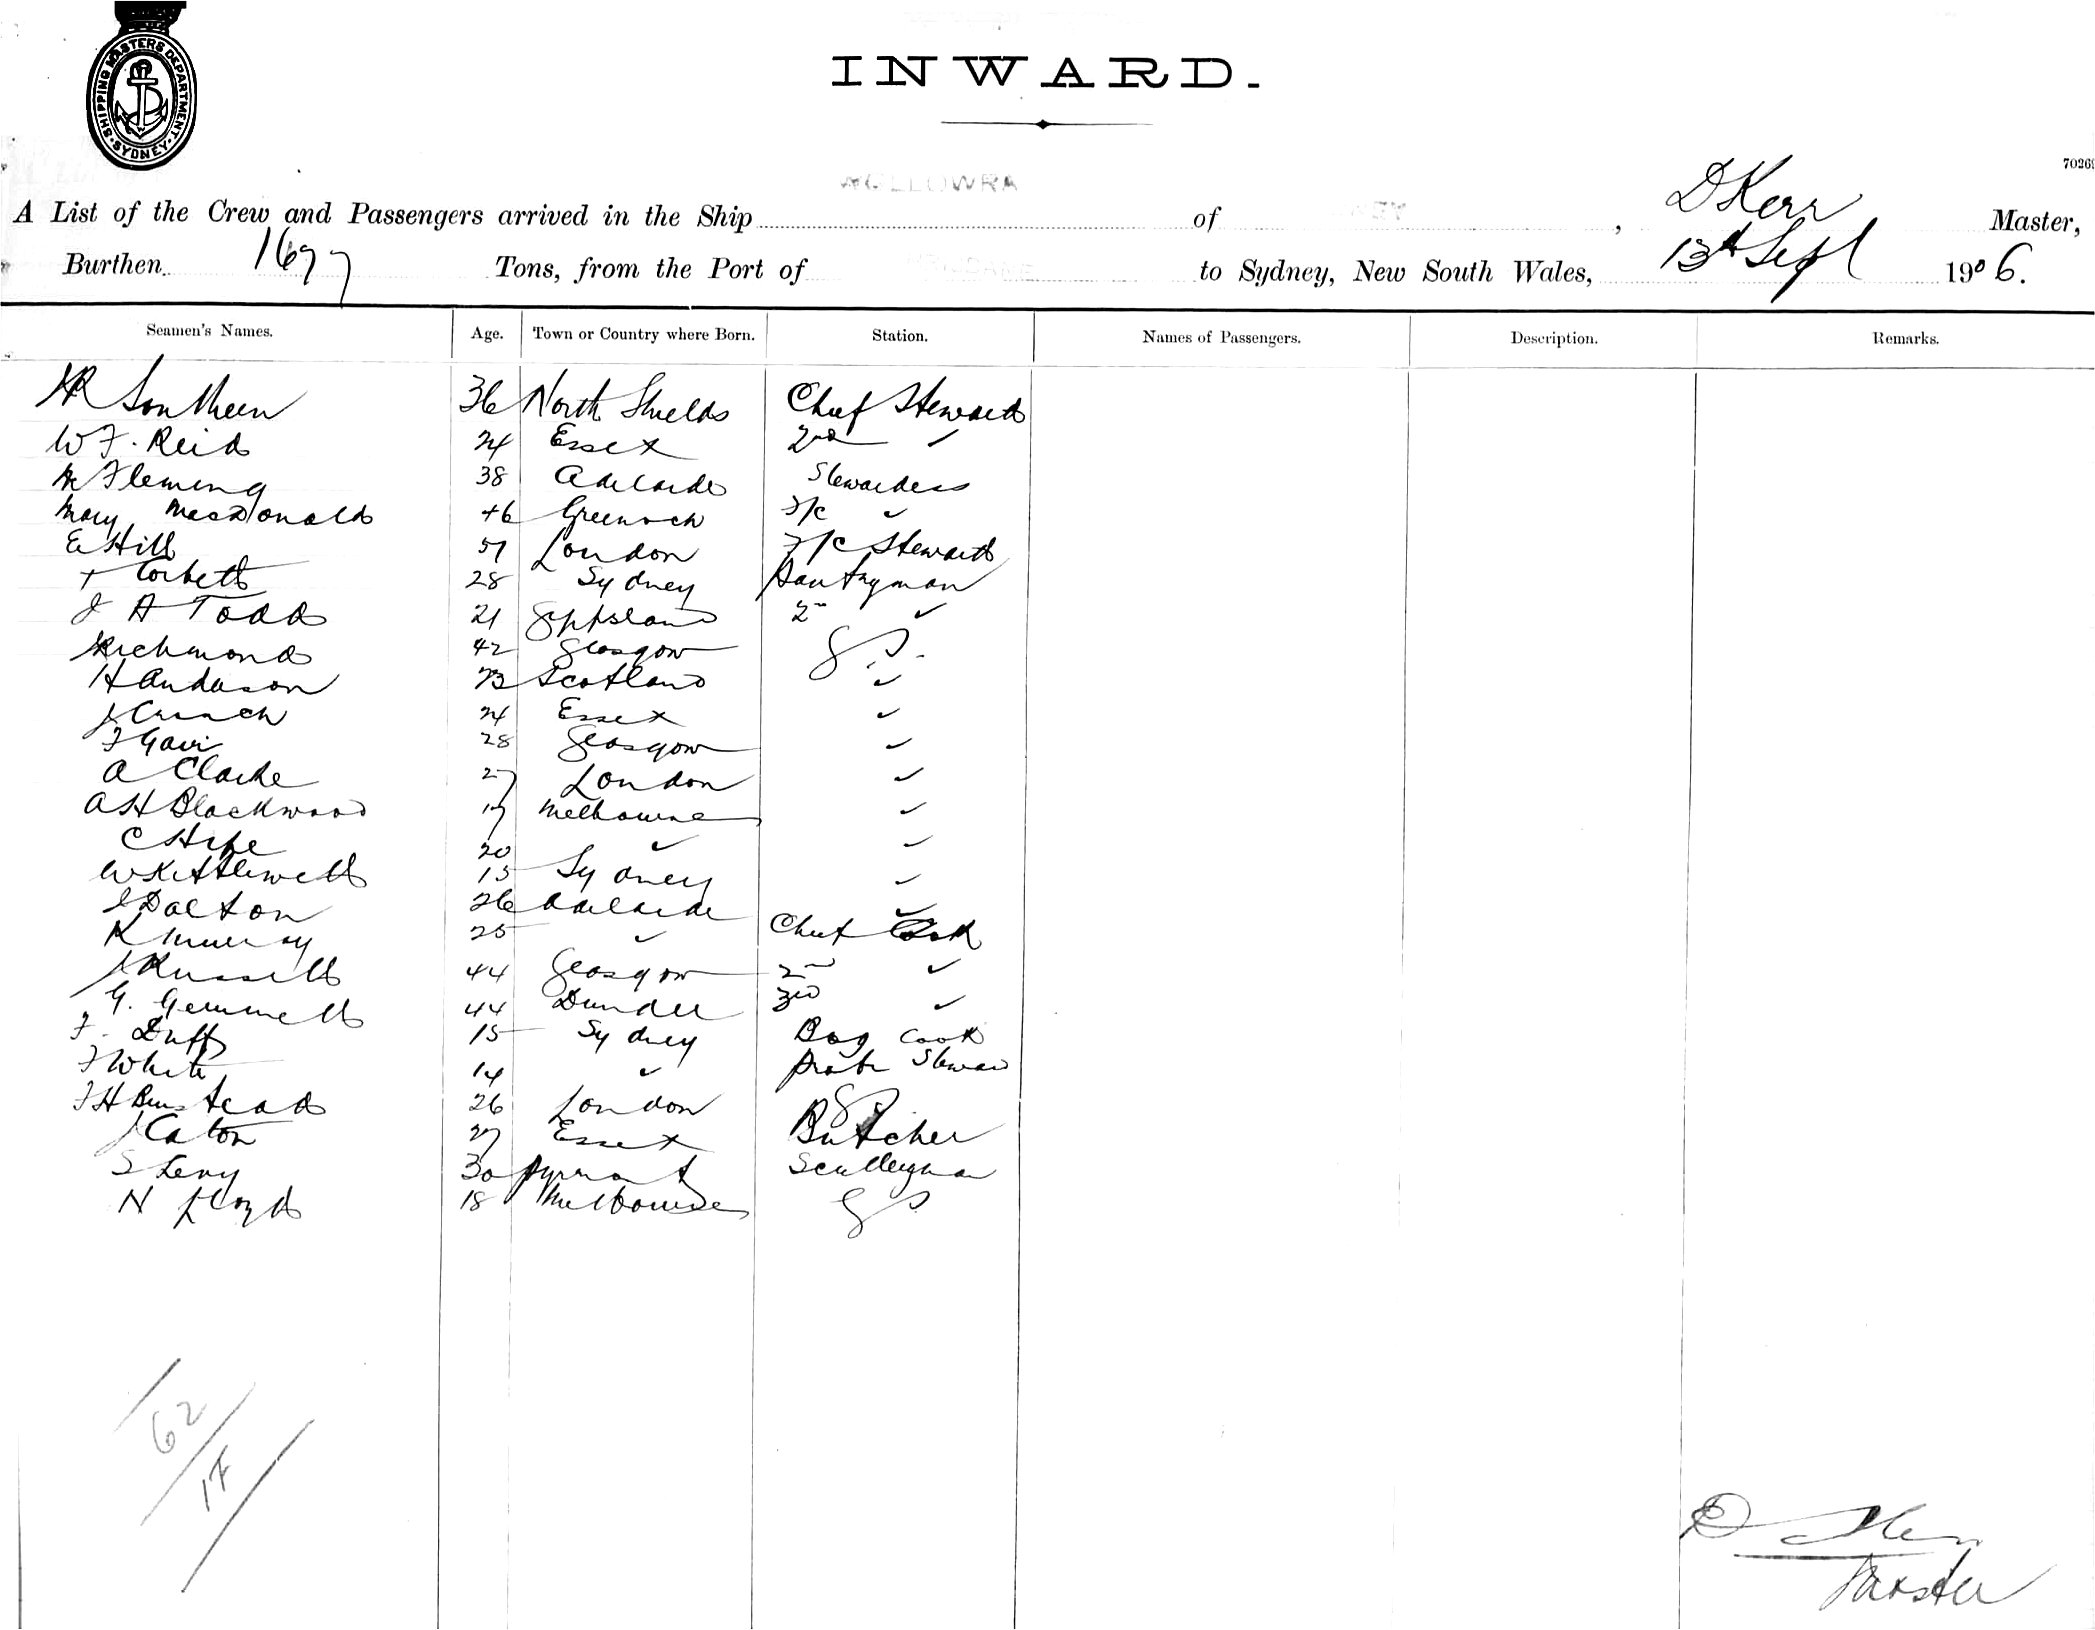 SHIPPING MASTERS DEPARTMENT
SYDNEY
INWARD.
70269
WOLLOWRA
A List of the Crew and Passengers arrived in the Ship of , D Kerr Master,
Burthen 1677 Tons, from the Port of to Sydney, New South Wales, 13th Sept 1906.
Seamen's Names. Age. Town or Country where Born. Station. Names of Passengers. Description. Remarks.
Southern 36 North Shields Chief Steward
W F. Reid 24 Essex 2nd ✓
M Fleming 38 Adelaide Stewardess
Mary MacDonald 46 Greenock F/c ✓
E Hill 57 London F/c Steward
T Corbett 28 Sydney Pantryman
J A Todd 21 Gippsland 2nd ✓
J Richmond 42 Glasgow G.S.
H Anderson 23 Scotland ✓
J Crunch 24 Essex ✓
F Gair 28 Glasgow ✓
A Clarke 27 London ✓
A H Blackwood 17 Melbourne ✓
C Hipe 20 ✓ ✓
W Kettlewell 15 Sydney ✓
J Dalton 26 Adelaide ✓
K Murray 25 ✓ Chief Cook
J Russell 44 Glasgow 2nd ✓
G. Gemmell 44 Dundee 3rd ✓
F. Duff 15 Sydney Boy Cook
F White 14 ✓ Probr Steward
F H Bumstead 26 London GS
J Caton 27 Essex Butcher
S Levy 30 Pyrmont Sculleryman
N Lloyd 18 Melbourne GS
62
17
D Kerr
Master